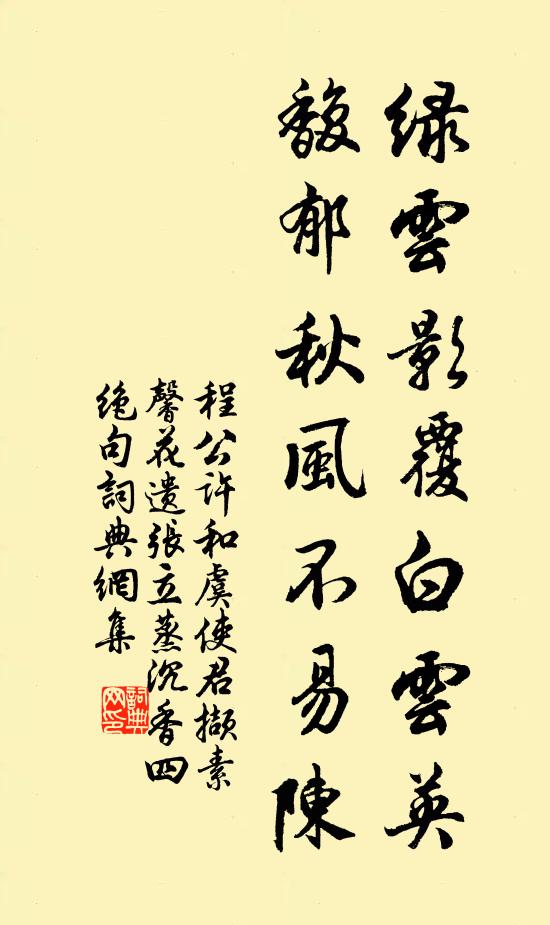 綠雲影覆白雲英
馥郁秋風不易陳
程公許和虞使君擷素
馨花遺張立蒸沉香四
絕句詞典網集
詞典
网印